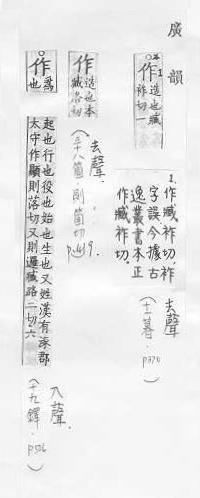 廣韻
作 造也臧
祚切一
1.作臧祚切,祚
字誤今據古
逸叢書本正
作臧祚切.
去聲
(十一暮.p370)
作 造也本
臧洛切
去聲.
(三十八箇.則箇切
p419.
作 為
也
起也行也役也始也生也又姓漢有涿郡
太守作顯則落切又則邏臧路二切六
入聲.
(十九鐸.p506)